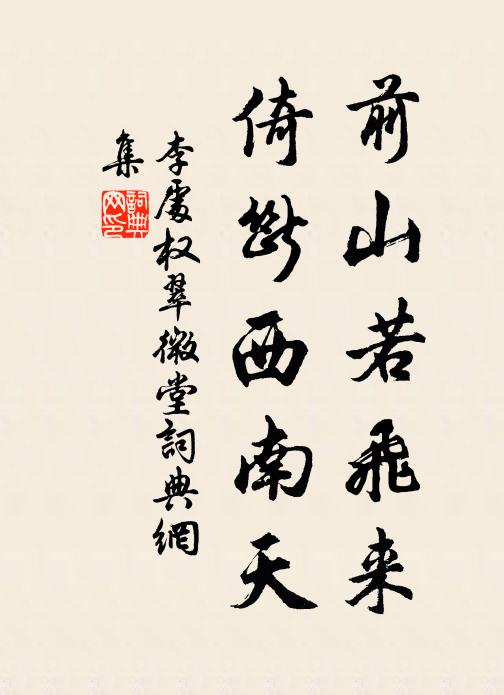 前山若飛来
倚断西南天
李處权翠微堂詞典網
集
詞典网印